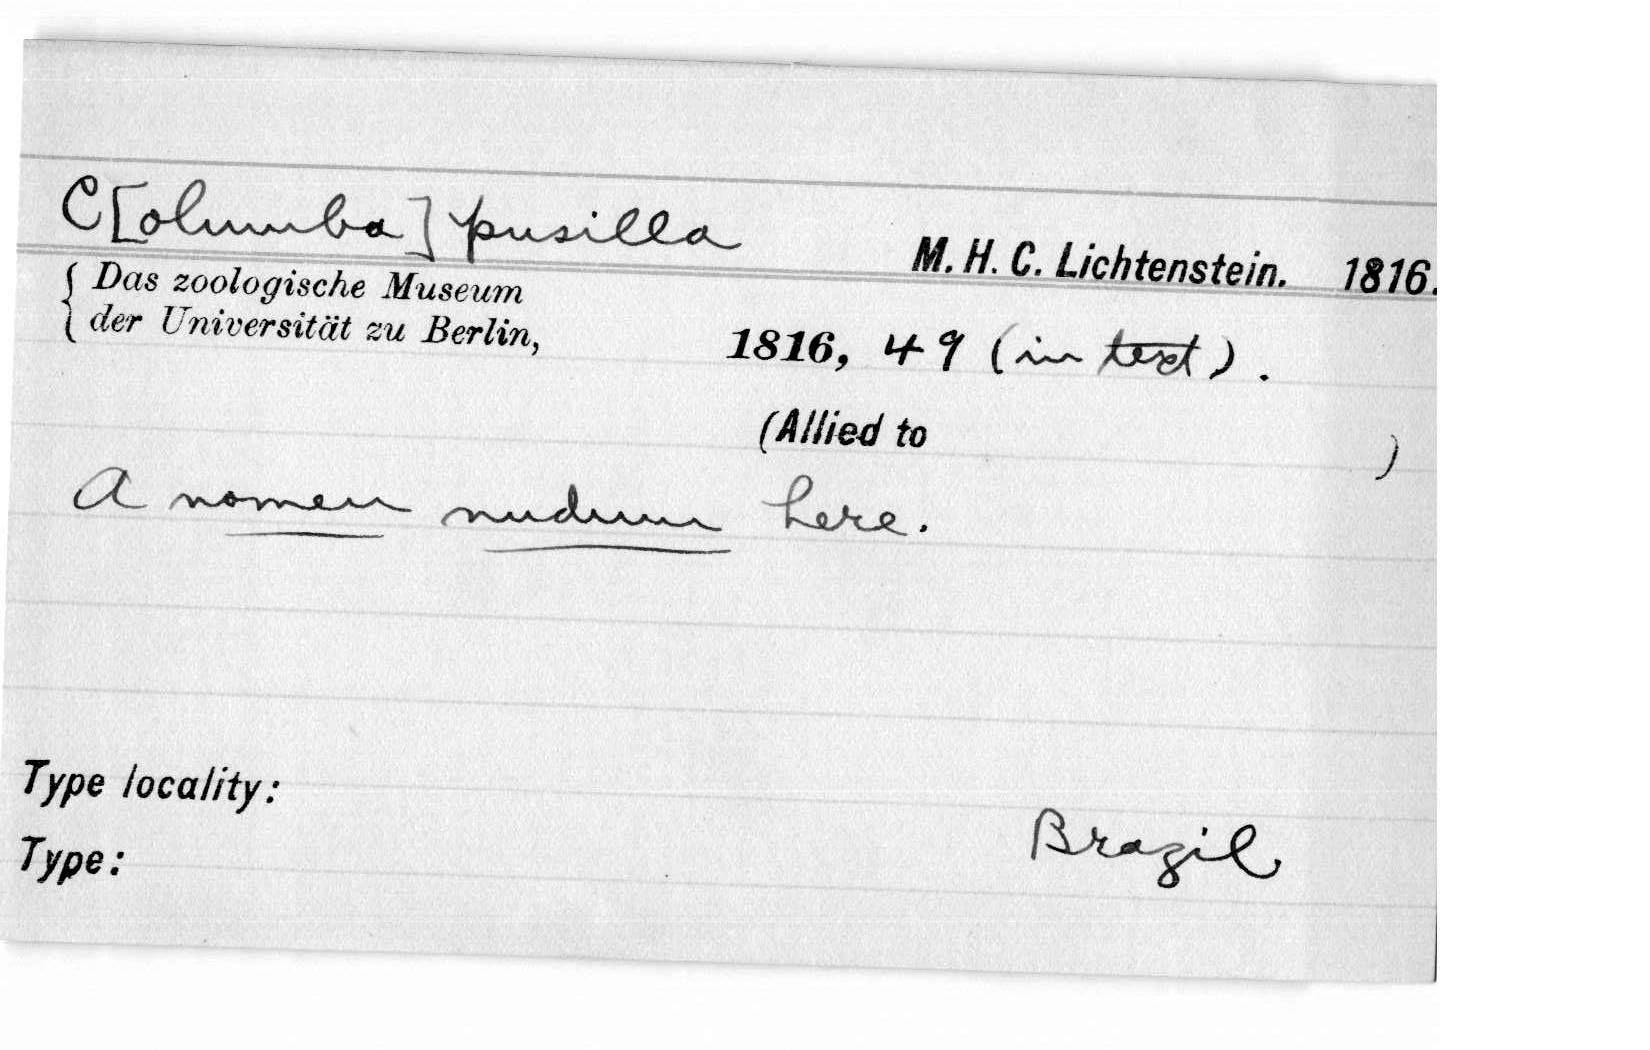 C[olumba] pusilla M. H. C. Lichtenstein. 1816.
{ Das zoologische Museum
der Universität zu Berlin, 1816, 49 (in text).
(Allied to )
A nomen nudum here.
Type locality:
Brazil
Type: